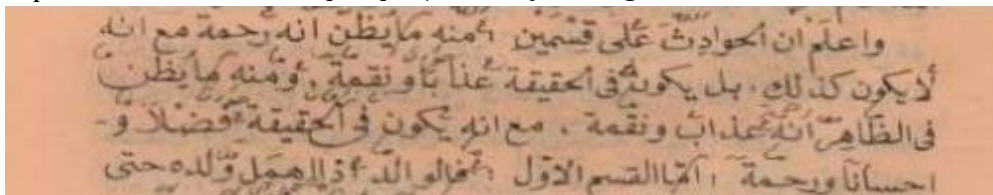 واعلم ان الحوادث على قسمين : منه ما يظن انه رحمة مع انه
لا يكون كذلك . بل يكون فى الحقيقة عذابا و نقمة . و منه ما يظن
فى الظاهر انه عذاب ونقمة . مع انه يكون فى الحقيقة فضلا و-
احسانا ورحمة ، اما القسم الاول : فالوالد اذا اهمل ولده حتى